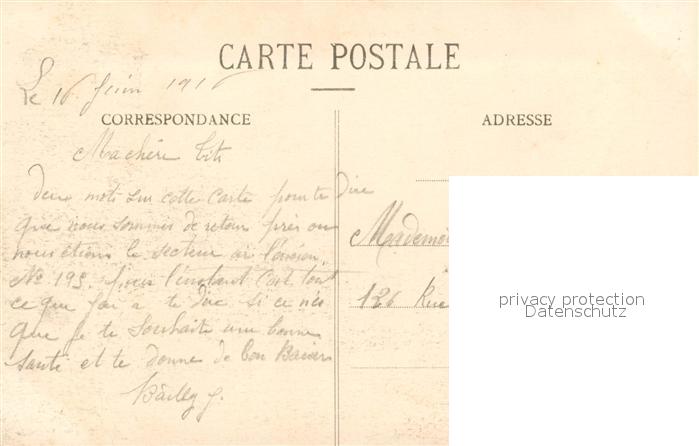 CARTE POSTALE
Le 16 Juin 1916
CORRESPONDANCE
ADRESSE
Machère
Deux mots sur cette Carte pour te dire
que nous sommes de retour près ou
nous étions le secteur
No 195. pour l'instant C'est tout
ce que j'ai a te dire si ce n'es
que je te Souhaite une bonne
santé et te donne de bon Baiser
Mademoi
126 Rue
privacy protection
Datenschutz